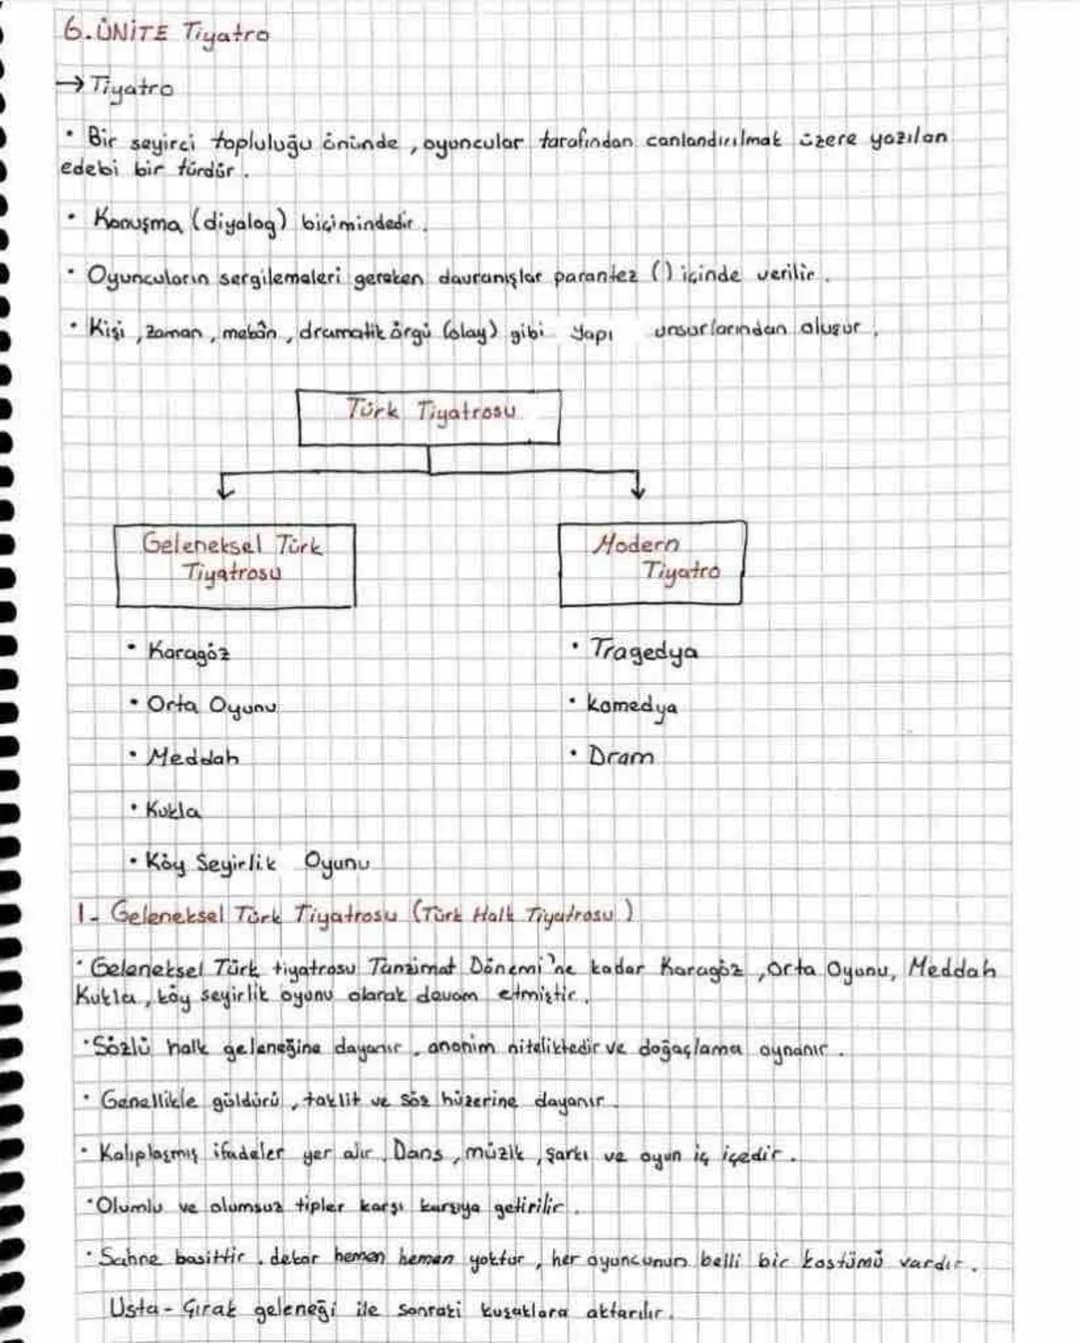 6.ÜNİTE Tiyatro
→ Tiyatro
• Bir seyirci topluluğu önünde, oyuncular tarafından canlandırılmak üzere yazılan
edebi bir türdür.
• Konuşma (diyalog) biçimindedir.
• Oyuncuların sergilemeleri gereken davranışlar parantez () içinde verilir.
• Kişi, zaman, mekân, dramatik örgü (olay) gibi yapı unsurlarından oluşur.
Türk Tiyatrosu
Geleneksel Türk
Tiyatrosu
Modern
Tiyatro
• Karagöz
• Orta Oyunu
• Meddah
• Kukla
• Köy Seyirlik Oyunu
• Tragedya
• Komedya
• Dram
1- Geleneksel Türk Tiyatrosu (Türk Halk Tiyatrosu)
• Geleneksel Türk tiyatrosu Tanzimat Dönemi'ne kadar Karagöz, Orta Oyunu, Meddah
Kukla, köy seyirlik oyunu olarak devam etmiştir.
• Sözlü halk geleneğine dayanır, anonim niteliktedir ve doğaçlama oynanır.
• Genellikle güldürü, taklit ve söz hüzerine dayanır.
• Kalıplaşmış ifadeler yer alır. Dans, müzik, şarkı ve oyun iç içedir.
• Olumlu ve olumsuz tipler karşı karşıya getirilir.
• Sahne basittir. dekor hemen hemen yoktur, her oyuncunun belli bir kostümü vardır.
Usta-Çırak geleneği ile sonraki kuşaklara aktarılır.